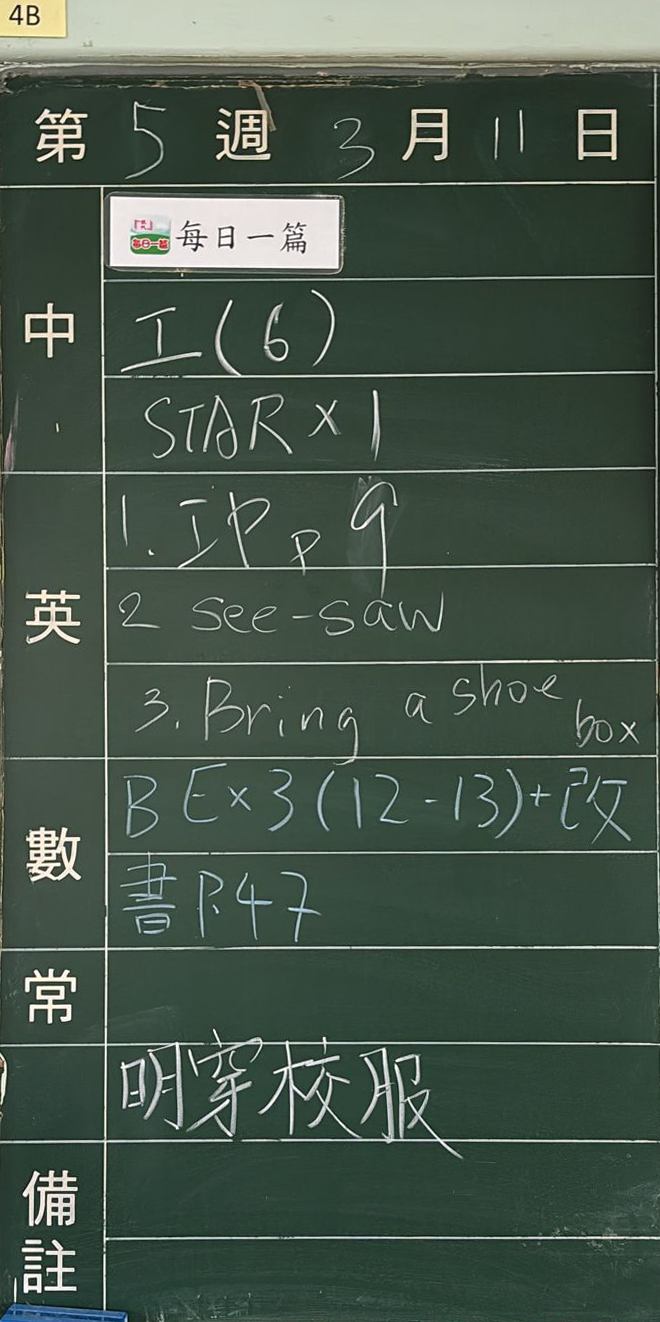 4B
第 5 週 3 月 11 日
中
每日一篇 每日一篇
工(6)
STAR×1
英
1. IP P9
2 see-saw
3. Bring a shoe box
數
BE×3(12-13)+改
書P.47
常
明穿校服
備註